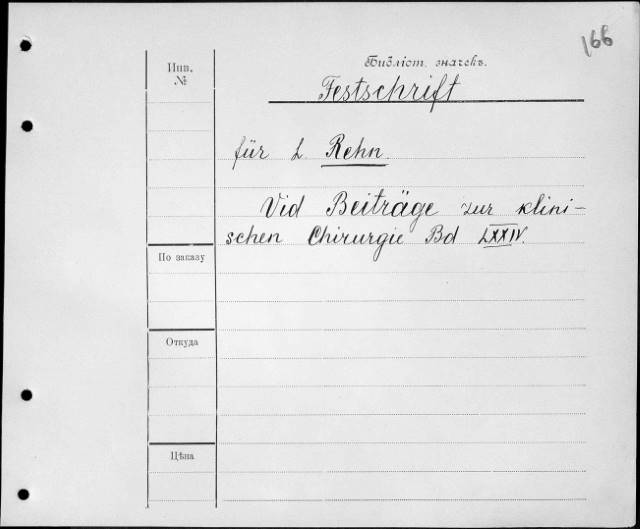 166
Инв.
№
Библіот. значекъ.
Festschrift
für L Rehn.
Vid Beiträge zur klini-
schen Chirurgie Bd LXXIV.
По заказу
Откуда
Цѣна